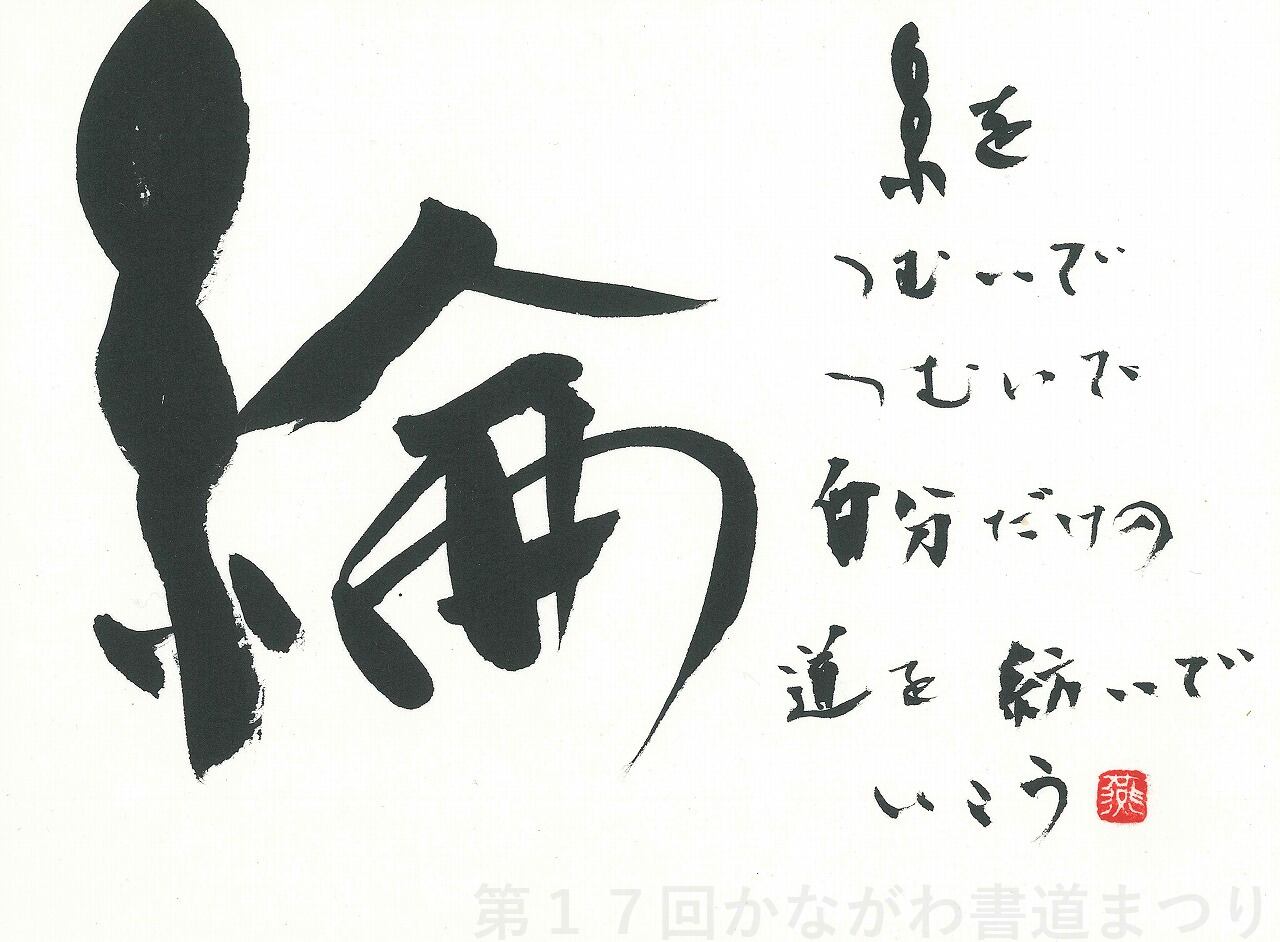 綸
糸を
つむいで
つむいで
自分だけの
道を紡いで
いこう
第17回かながわ書道まつり